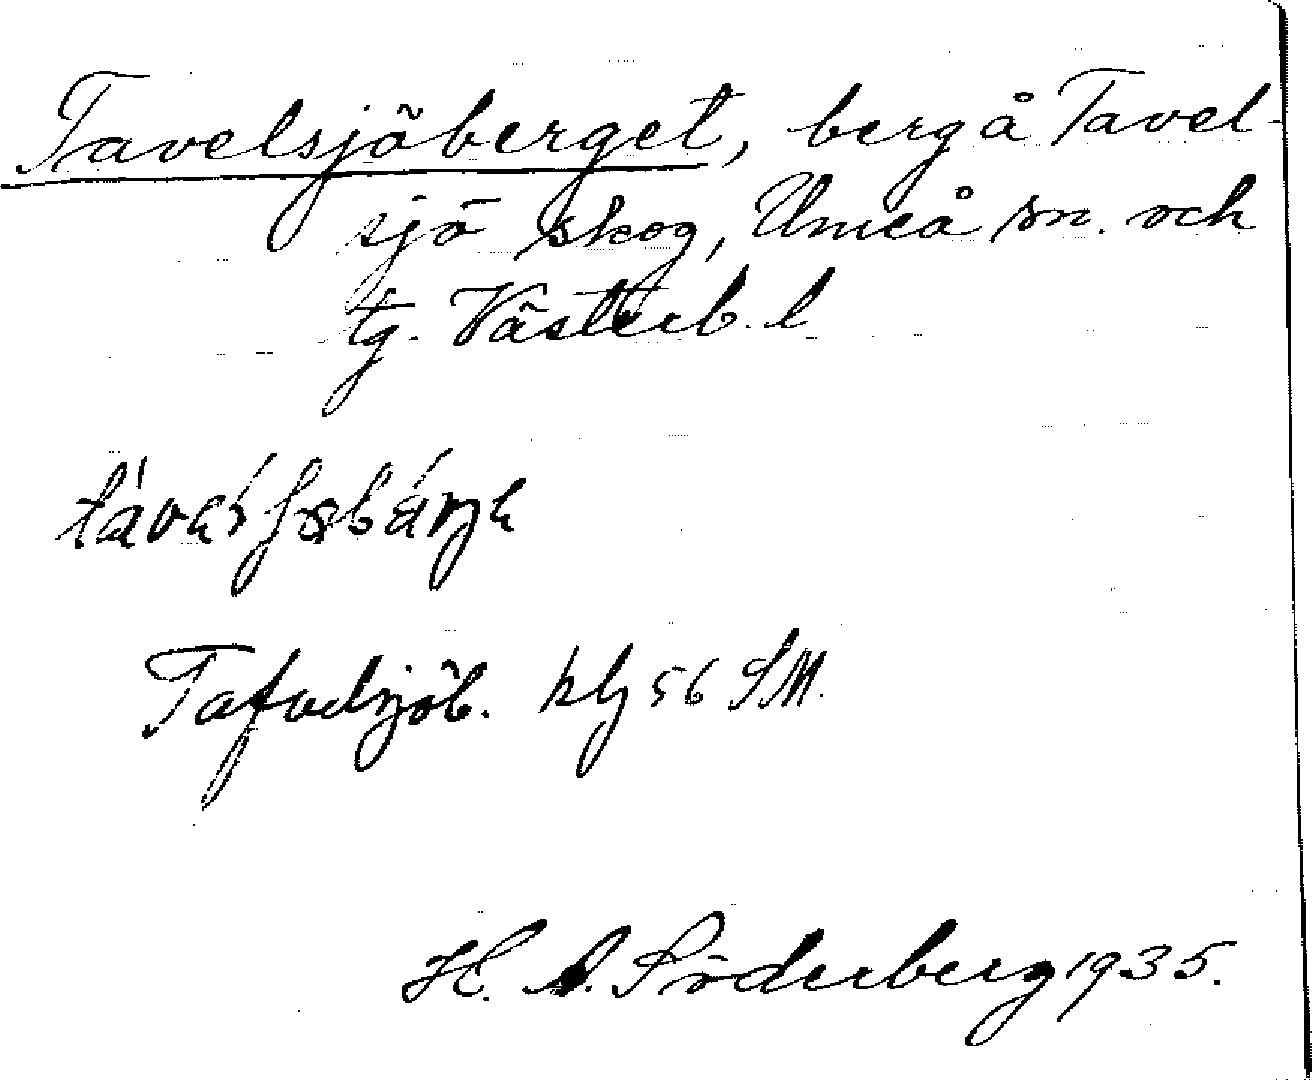 Tavelsjöberget, berg å Tavel-
sjö skog, Umeå sn. och
tg. Västerb. l
Tafvelsjöb. kbl 56 SM.
H. A. Söderberg 1935.